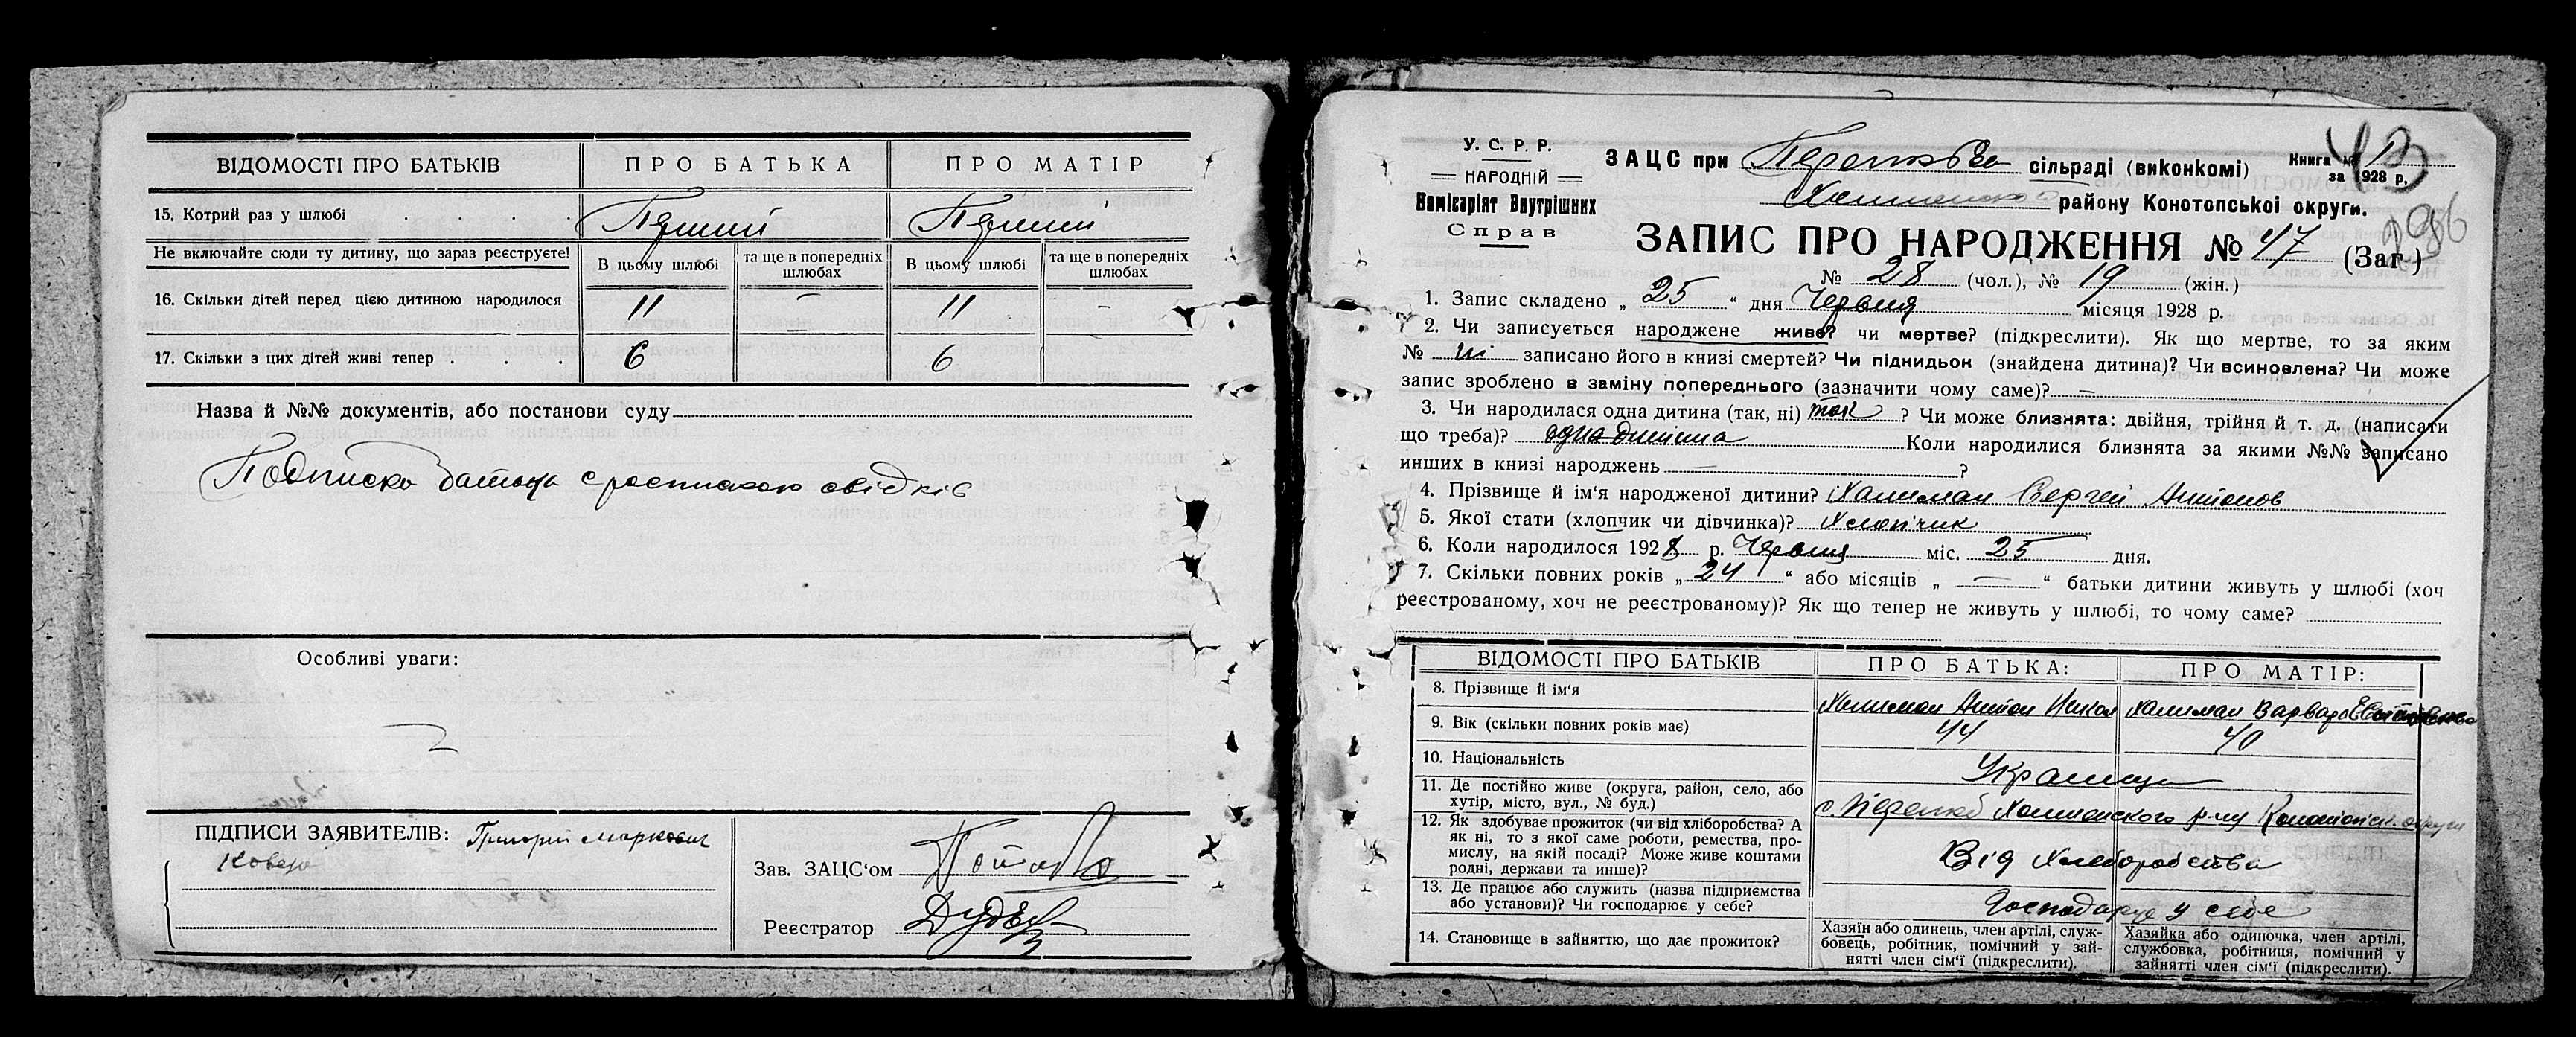 ВІДОМОСТІ ПРО БАТЬКІВ ПРО БАТЬКА ПРО МАТІР
15. Котрий раз у шлюбі Перший Перший
Не включайте сюди ту дитину, що зараз реєструєте! В цьому шлюбі та ще в попередніх шлюбах В цьому шлюбі та ще в попередніх шлюбах
16. Скільки дітей перед цією дитиною народилося 11 — 11 —
17. Скільки з цих дітей живі тепер 6 6
Назва й №№ документів, або постанови суду
Подписка батька с роспискою свідків
Особливі уваги:
ПІДПИСИ ЗАЯВИТЕЛІВ: Григорий Маркович
Зав. ЗАЦС‘ом
Реєстратор
У. С. Р. Р.
НАРОДНІЙ
Комісаріят Внутрішних
Справ
ЗАЦС при сільраді (виконкомі) Книга №
за 1928 р.
району Конотопської округи.
ЗАПИС ПРО НАРОДЖЕННЯ № 47 (Заг.)
№ 28 (чол.), № 19 (жін.)
1. Запис складено „ 25 “ дня Червня місяця 1928 р.
2. Чи записується народжене живе? чи мертве? (підкреслити). Як що мертве, то за яким
№ записано його в книзі смертей? Чи підкидьок (знайдена дитина)? Чи всиновлена? Чи може
запис зроблено в заміну попереднього (зазначити чому саме)? —
3. Чи народилася одна дитина (так, ні) так ? Чи може близнята: двійня, трійня й т. д. (написати
що треба)? одна дитина Коли народилися близнята за якими №№ записано
инших в книзі народжень — ?
4. Прізвище й ім‘я народженої дитини? Халиман Сергей Антонов
5. Якої стати (хлопчик чи дівчинка)? Хлопчик
6. Коли народилося 1928 р. Червня міс. 25 дня.
7. Скільки повних років „ 24 “ або місяців „ — “ батьки дитини живуть у шлюбі (хоч
реєстрованому, хоч не реєстрованому)? Як що тепер не живуть у шлюбі, то чому саме?
ВІДОМОСТІ ПРО БАТЬКІВ ПРО БАТЬКА: ПРО МАТІР:
8. Прізвище й ім‘я Халиман Антон Никол Халиман Варвара
9. Вік (скільки повних років має) 44 40
10. Національність Украинци
11. Де постійно живе (округа, район, село, або
хутір, місто, вул., № буд.)
12. Як здобуває прожиток (чи від хліборобства? А
як ні, то з якої саме роботи, ремества, про-
мислу, на якій посаді? Може живе коштами
родні, держави та инше)? Від Хлеборобства
13. Де працює або служить (назва підприємства
або установи)? Чи господарює у себе? Господарює у себе
14. Становище в зайняттю, що дає прожиток?
Хазяїн або одинець, член артілі, служ-
бовець, робітник, помічний у зай-
нятті член сім‘ї (підкреслити).
Хазяйка або одиночка, член артілі,
службовка, робітниця, помічний у
зайнятті член сім‘ї (підкреслити).